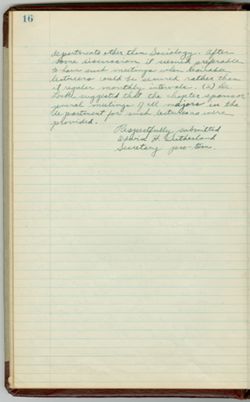 16
departments other than Sociology. After
some discussion it seemed preferable
to have such meetings when desirable
lecturers could be secured rather than
at regular monthly intervals. (2)
suggested that the chapter sponsor
general meetings of all majors in the
department for such lecturers were
provided.
Respectfully submitted
H. Sutherland
Secretary pro-tem.